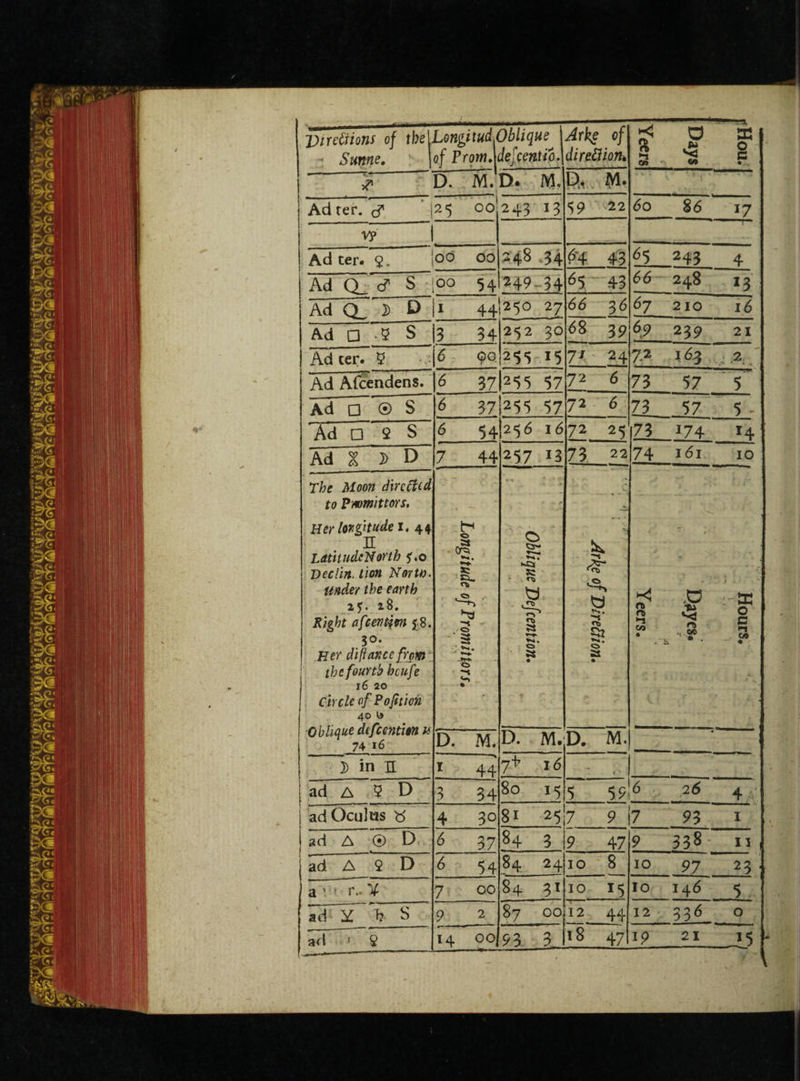 Directions of the Sunne. | Longitud of Prom. | Oblique descentio. | Arke of direction. | Yeers Days Hou.
♐ | D. M. | D. M. | D. M.
Ad ter. ♂ | 25 00 | 243 13 | 59 22 | 60 86 17
♑
Ad ter. ♀. | 00 00 | 248 34 | 64 43 | 65 243 4
Ad Q. ♂ S | 00 54 | 249 34 | 65 43 | 66 248 13
Ad Q. ☽ D | 1 44 | 250 27 | 66 36 | 67 210 16
Ad □ ☿ S | 3 34 | 252 30 | 68 39 | 69 239 21
Ad ter. ☿ | 6 00 | 255 15 | 71 24 | 72 163 2
Ad Ascendens. | 6 37 | 255 57 | 72 6 | 73 57 5
Ad □ ☉ S | 6 37 | 255 57 | 72 6 | 73 57 5
Ad □ ♀ S | 6 54 | 256 16 | 72 25 | 73 174 14
Ad ☽ D | 7 44 | 257 13 | 73 22 | 74 161 10
The Moon directed
to Promittors.
Her longitude 1. 44
♊
Latitude North 5.0
Declin. tion North.
under the earth
25. 28.
Right ascention 58.
30.
Her distance from
the fourth house
16 20
Circle of Position
40 is
Oblique descention is
74 16
Longitude of Promittors.
Oblique Descention.
Arke of Direction.
Yeers.
Dayes.
Hours.
D. M. | D. M. | D. M.
☽ in ♊ | 1 44 | 74 16
ad △ ☿ D | 3 34 | 80 15 | 5 59 | 6 26 4
ad Oculus ♉ | 4 30 | 81 25 | 7 9 | 7 93 1
ad △ ☉ D | 6 37 | 84 3 | 9 47 | 9 338 11
ad △ ♀ D | 6 54 | 84 24 | 10 8 | 10 97 23
a r. ♃ | 7 00 | 84 31 | 10 15 | 10 146 5
ad ♄ S | 9 2 | 87 00 | 12 44 | 12 336 0
ad ♀ | 14 00 | 93 3 | 18 47 | 19 21 15